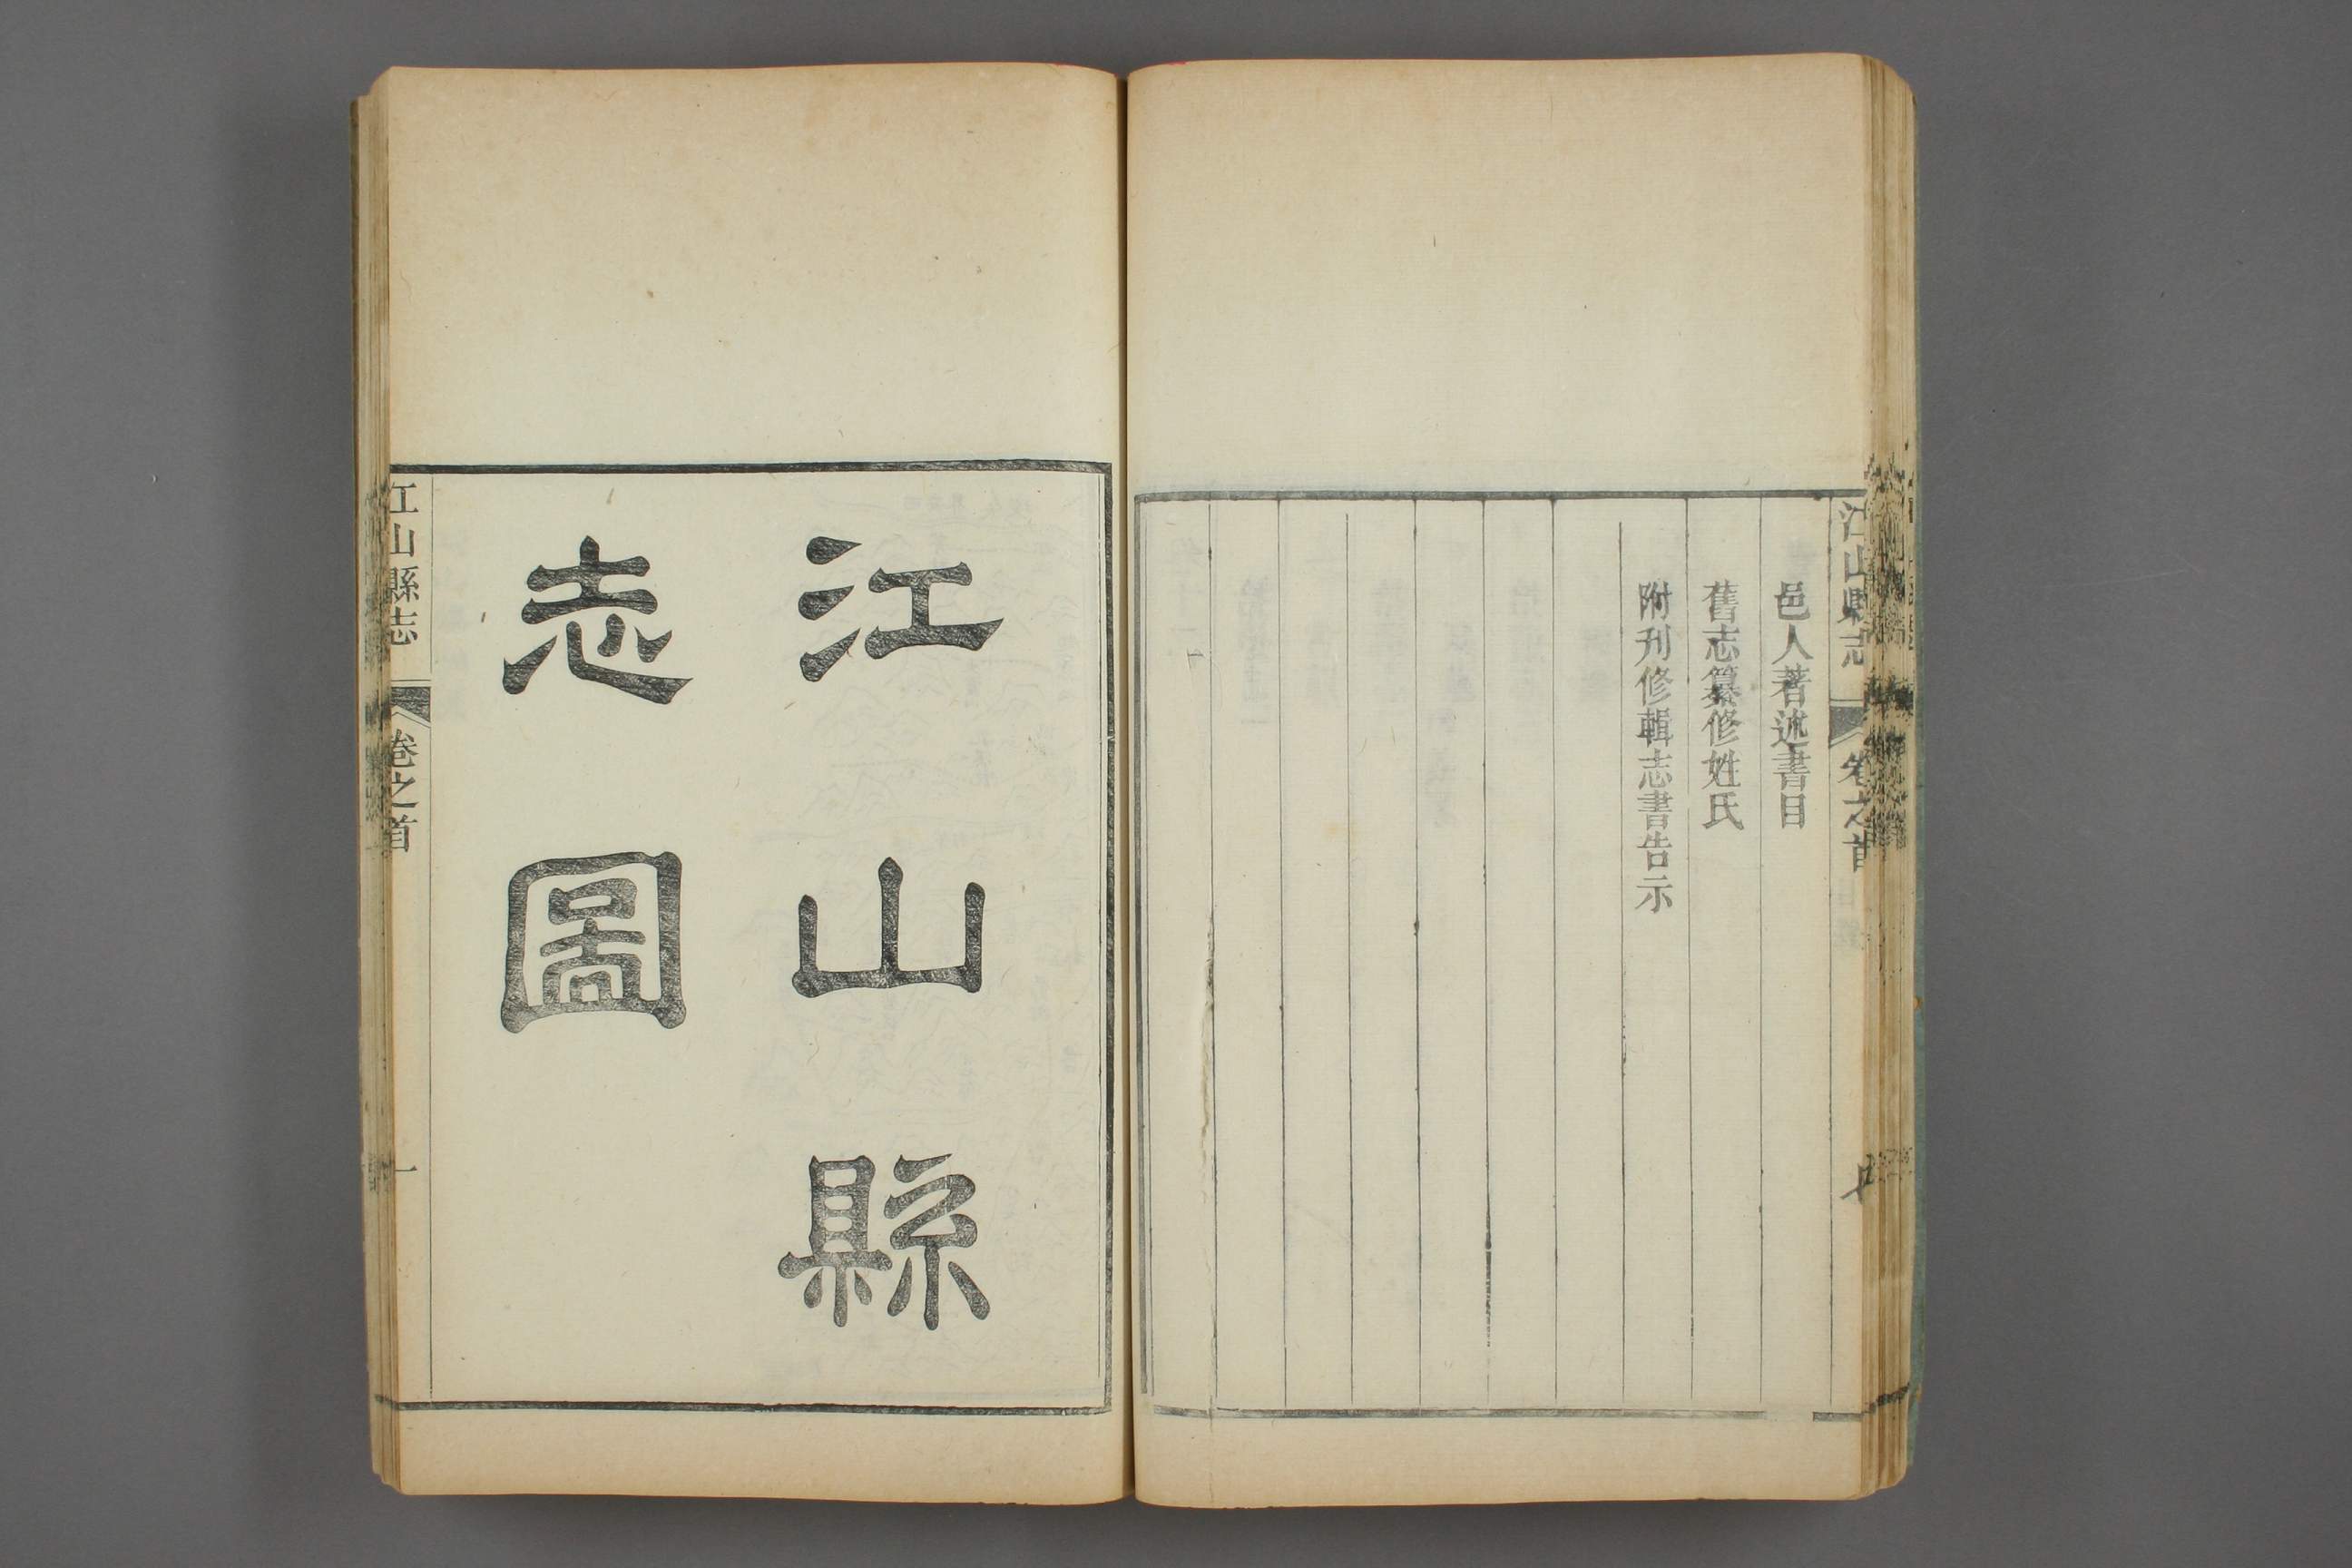 江山縣志 卷之首
邑人著述書目
舊志纂修姓氏
附刊修輯志書告示
江山縣
志圖
江山縣志 卷之首 一